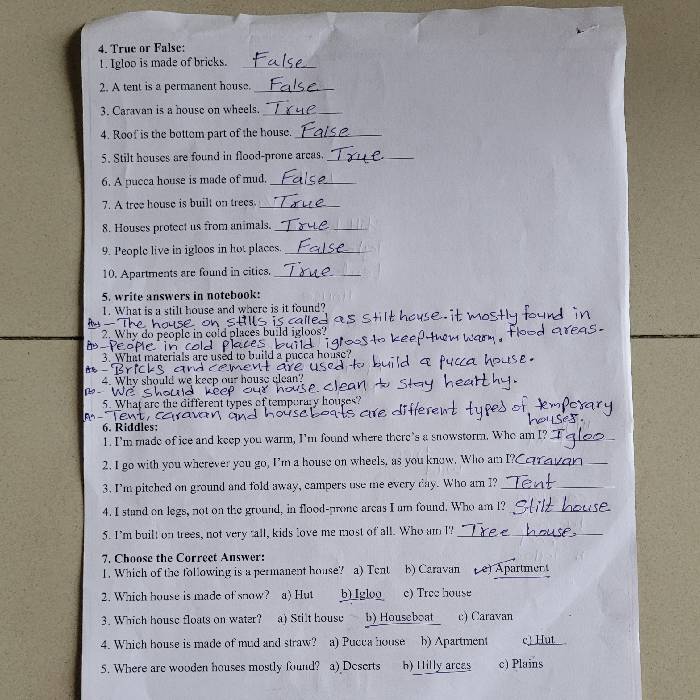 4. True or False:
1. Igloo is made of bricks. False
2. A tent is a permanent house. False
3. Caravan is a house on wheels. True
4. Roof is the bottom part of the house. False
5. Stilt houses are found in flood-prone areas. True
6. A pucca house is made of mud. False
7. A tree house is built on trees. True
8. Houses protect us from animals. True
9. People live in igloos in hot places. False
10. Apartments are found in cities. True
5. write answers in notebook:
1. What is a stilt house and where is it found?
Ans - The house on stills is called as stilt house. it mostly found in flood areas.
2. Why do people in cold places build igloos?
Ans - People in cold places build igloos to keep them warm.
3. What materials are used to build a pucca house?
Ans - Bricks and cement are used to build a pucca house.
4. Why should we keep our house clean?
Ans - We should keep our house clean to stay healthy.
5. What are the different types of temporary houses?
Ans - Tent, caravan and houseboats are different types of temporary houses.
6. Riddles:
1. I'm made of ice and keep you warm, I'm found where there's a snowstorm. Who am I? Igloo
2. I go with you wherever you go, I'm a house on wheels, as you know. Who am I? Caravan
3. I'm pitched on ground and fold away, campers use me every day. Who am I? Tent
4. I stand on legs, not on the ground, in flood-prone areas I am found. Who am I? Stilt house
5. I'm built on trees, not very tall, kids love me most of all. Who am I? Tree house
7. Choose the Correct Answer:
1. Which of the following is a permanent house? a) Tent b) Caravan c) Apartment
2. Which house is made of snow? a) Hut b) Igloo c) Tree house
3. Which house floats on water? a) Stilt house b) Houseboat c) Caravan
4. Which house is made of mud and straw? a) Pucca house b) Apartment c) Hut
5. Where are wooden houses mostly found? a) Deserts b) Hilly areas c) Plains